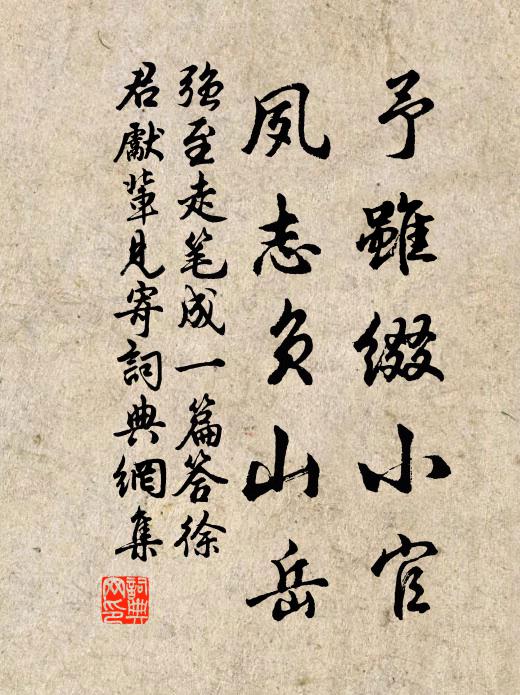 予雖綴小官
夙志負山岳
強至走笔成一篇答徐
君獻輩見寄詞典網集
詞典網印